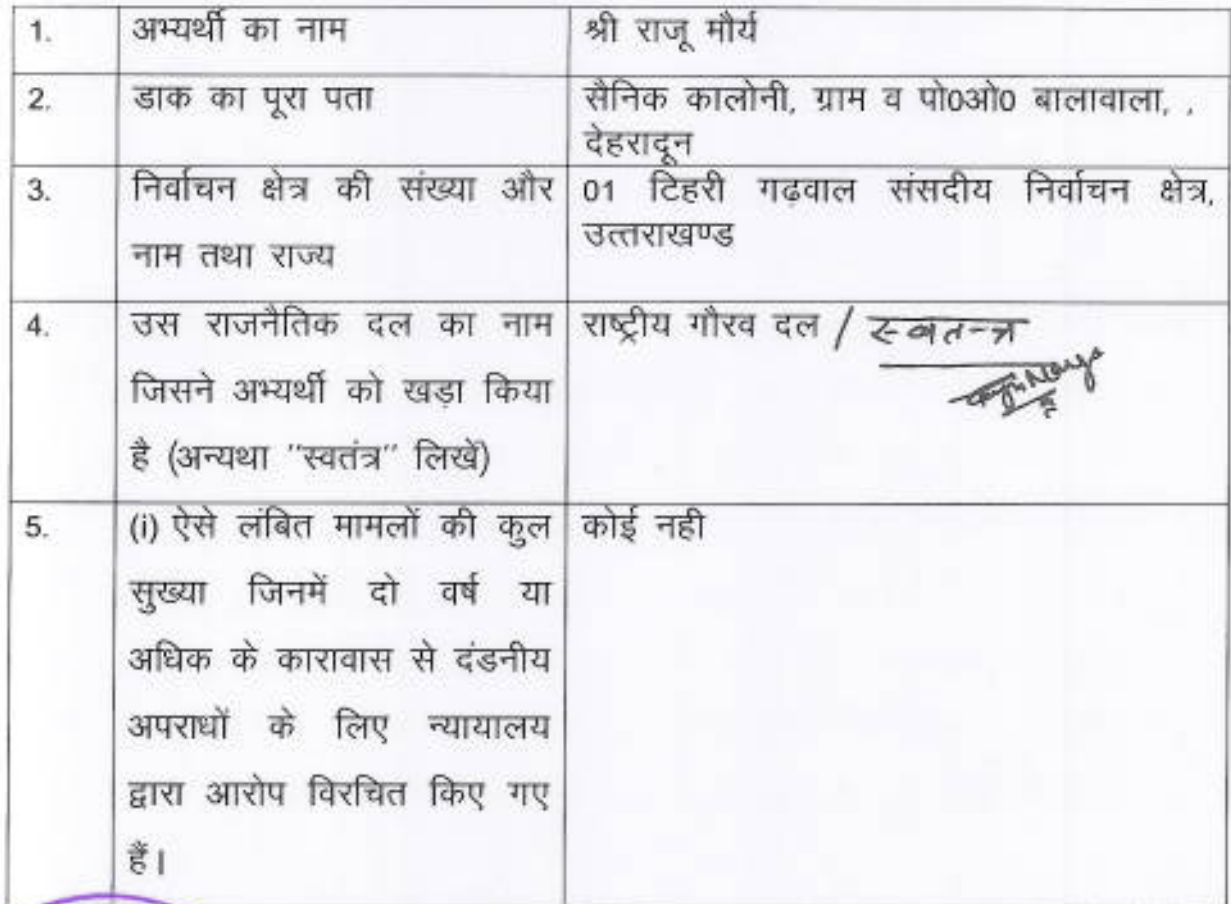 1. अभ्यर्थी का नाम श्री राजू मौर्य
2. डाक का पूरा पता सैनिक कालोनी, ग्राम व पो0ओ0 बालावाला, ,
देहरादून
3. निर्वाचन क्षेत्र की संख्या और
नाम तथा राज्य
01 टिहरी गढ़वाल संसदीय निर्वाचन क्षेत्र,
उत्तराखण्ड
4. उस राजनैतिक दल का नाम
जिसने अभ्यर्थी को खड़ा किया
है (अन्यथा "स्वतंत्र" लिखें)
राष्ट्रीय गौरव दल / स्वतन्त्र
5. (i) ऐसे लंबित मामलों की कुल
सुख्या जिनमें दो वर्ष या
अधिक के कारावास से दंडनीय
अपराधों के लिए न्यायालय
द्वारा आरोप विरचित किए गए
हैं।
कोई नही